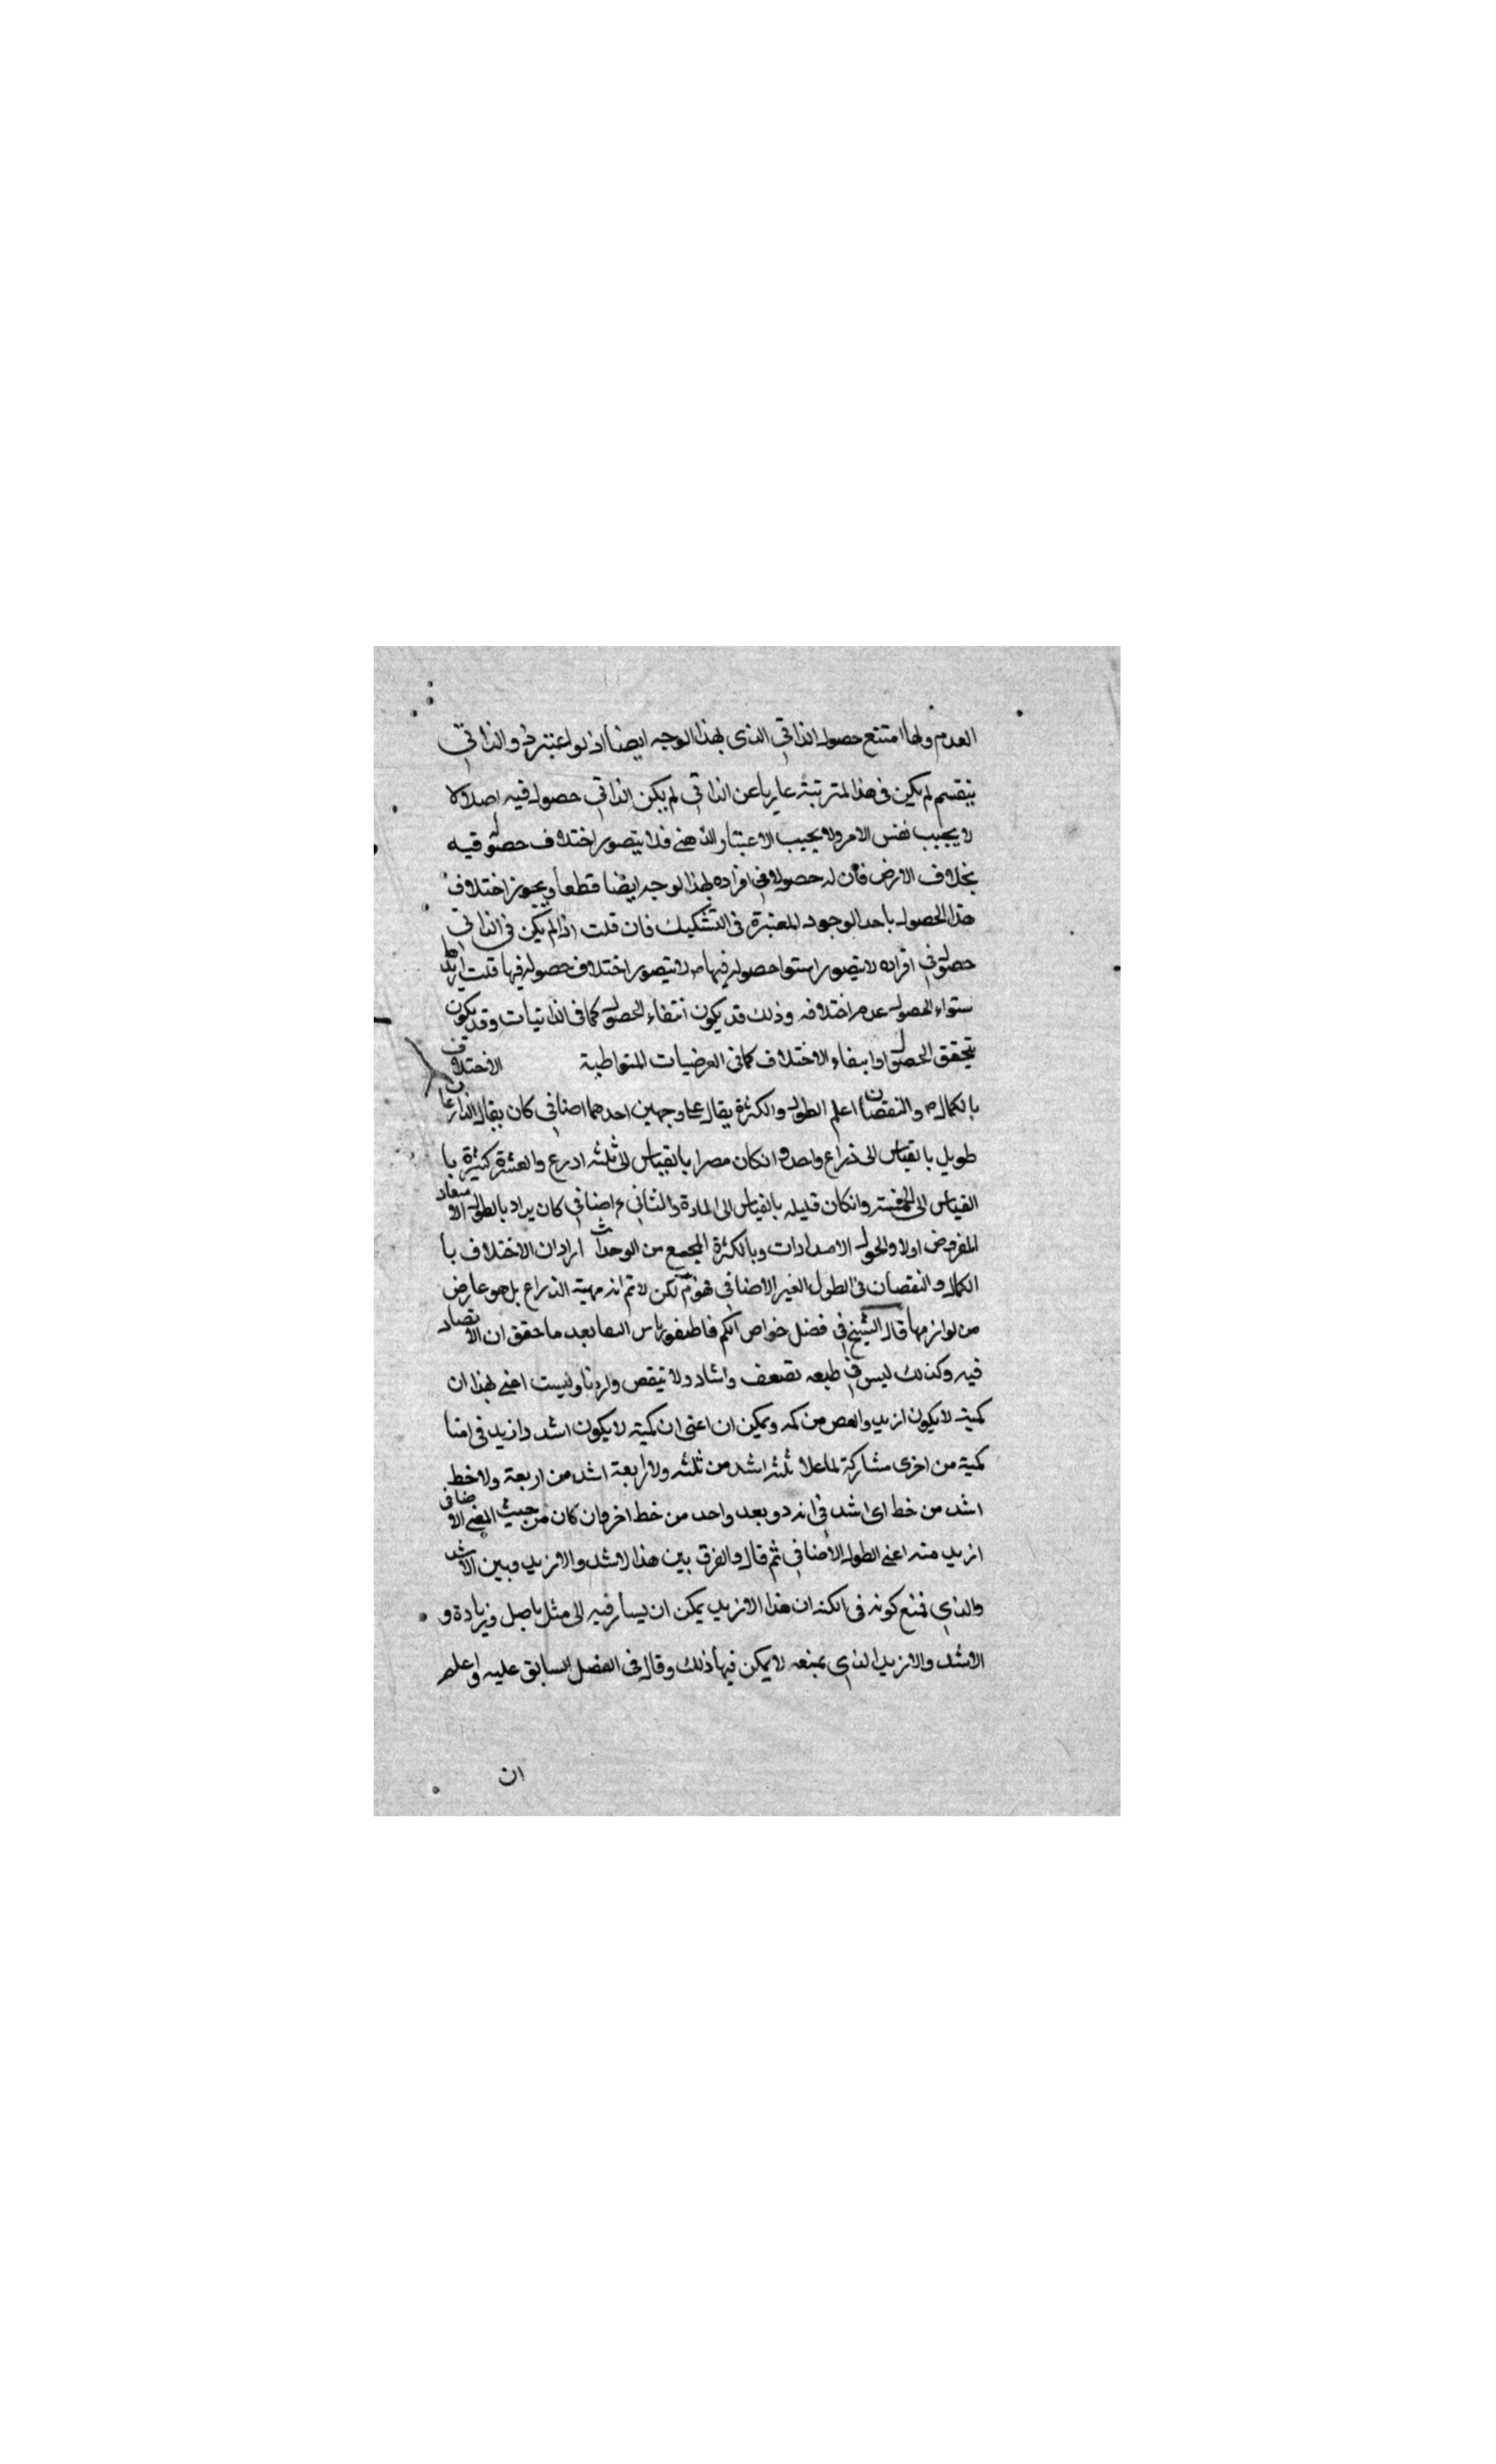 العدم ولها امتنع حصوله الذاتي الذي بهذا الوجه ايضا اذ لو اعتبر ذو الذاتي
بنفسم لم يكن في هذا المترتبة عاريا عن الذاتي لم يكن الذاتي حصوله فيه اصلا لا
لا يجيب نفس الامر ولا يجيب الاعتبار الذهني فلا يتصور اختلاف حصوله فيه
بخلاف الارض فان له حصولا في افراده بهذا الوجه ايضا قطعا ويجوز اختلاف
هذا الحصول باحد الوجوه المعتبرة في التشكيك فان قلت اذا لم يكن في الذاتي
حصول في افراده لا يتصور استوا حصوله فيها م لا يتصور اختلاف حصوله فيها قلت اريد
ستواء الحصول عدم اختلافه وذلك قد يكون انتفاء الحصول كما في الذاتيات وقد يكون
يتحقق الحصول وانتفاء الاختلاف كما في العرضيات المتواطية الاختلاف
بالكمال والنقصان اعلم الطول والكثرة يقال على وجهين احدهما اضافي كان يقال الذارعان
طويل بالقياس الى ذراع واحد وانكان مصرا بالقياس الى ثلثه ادرع والعشرة كثيرة با
القياس الى الخمسة وانكان قليله بالقياس الى المادة والثاني اضافي كان يراد بالطول الا
المفروض اولا والحول الامدادات وبالكثرة المجمع من الوحدات اراد ان الاختلاف با
الكمال والنقصان في الطول الغير الاضافي فهو م لكن لا تم انه مهية الذراع بل هو عارض
من لوازمها قال الشيخ في فضل خواص الكم فاطيغورياس الشفا بعد ما حقق ان الا تضاد
فيه وكذلك ليس في طبعه تضعف واشاد ولا تنقص وازدنا وليست اعني بهذا ان
كمية لا يكون ازيد والعص من كمه ويمكن ان اعني ان كمية لا يكون اشد وازيد في
كمية من اخرى مشاركة لها علا ثلثه اشد من ثلثه ولا اربعة اشد من اربعة ولا خط
اشد من خط اي اشد في انه ذو بعد واحد من خط اخر وان كان من حيث المعنى الا ضافي
ازيد منه اعني الطول الاضافي ثم قال والفرق بين هذا الاشد والازيد وبين الاشد
والذي فمنع كونه في الكم ان هذا الازيد يمكن ان يسار فيه الى مثل باصل وزيادة و
الاشد والازيد الذي بمنعه لا يمكن فيها ذلك وقال في الفضل السابق عليه واعلم
ان